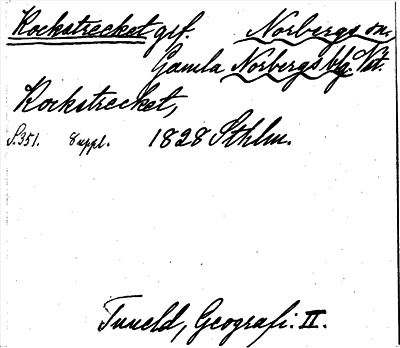 Rockstrecket grf. Norbergs sn.
Gamla Norbergs blg. Vst.
Rockstrecket,
S. 351. Suppl. 1828 Sthlm.
Tuneld, Geografi. II.